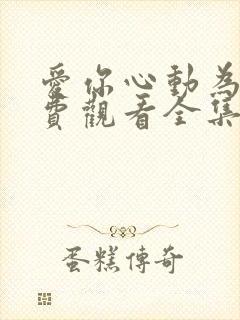 愛你心動為
費觀看全集
蛋糕傳奇